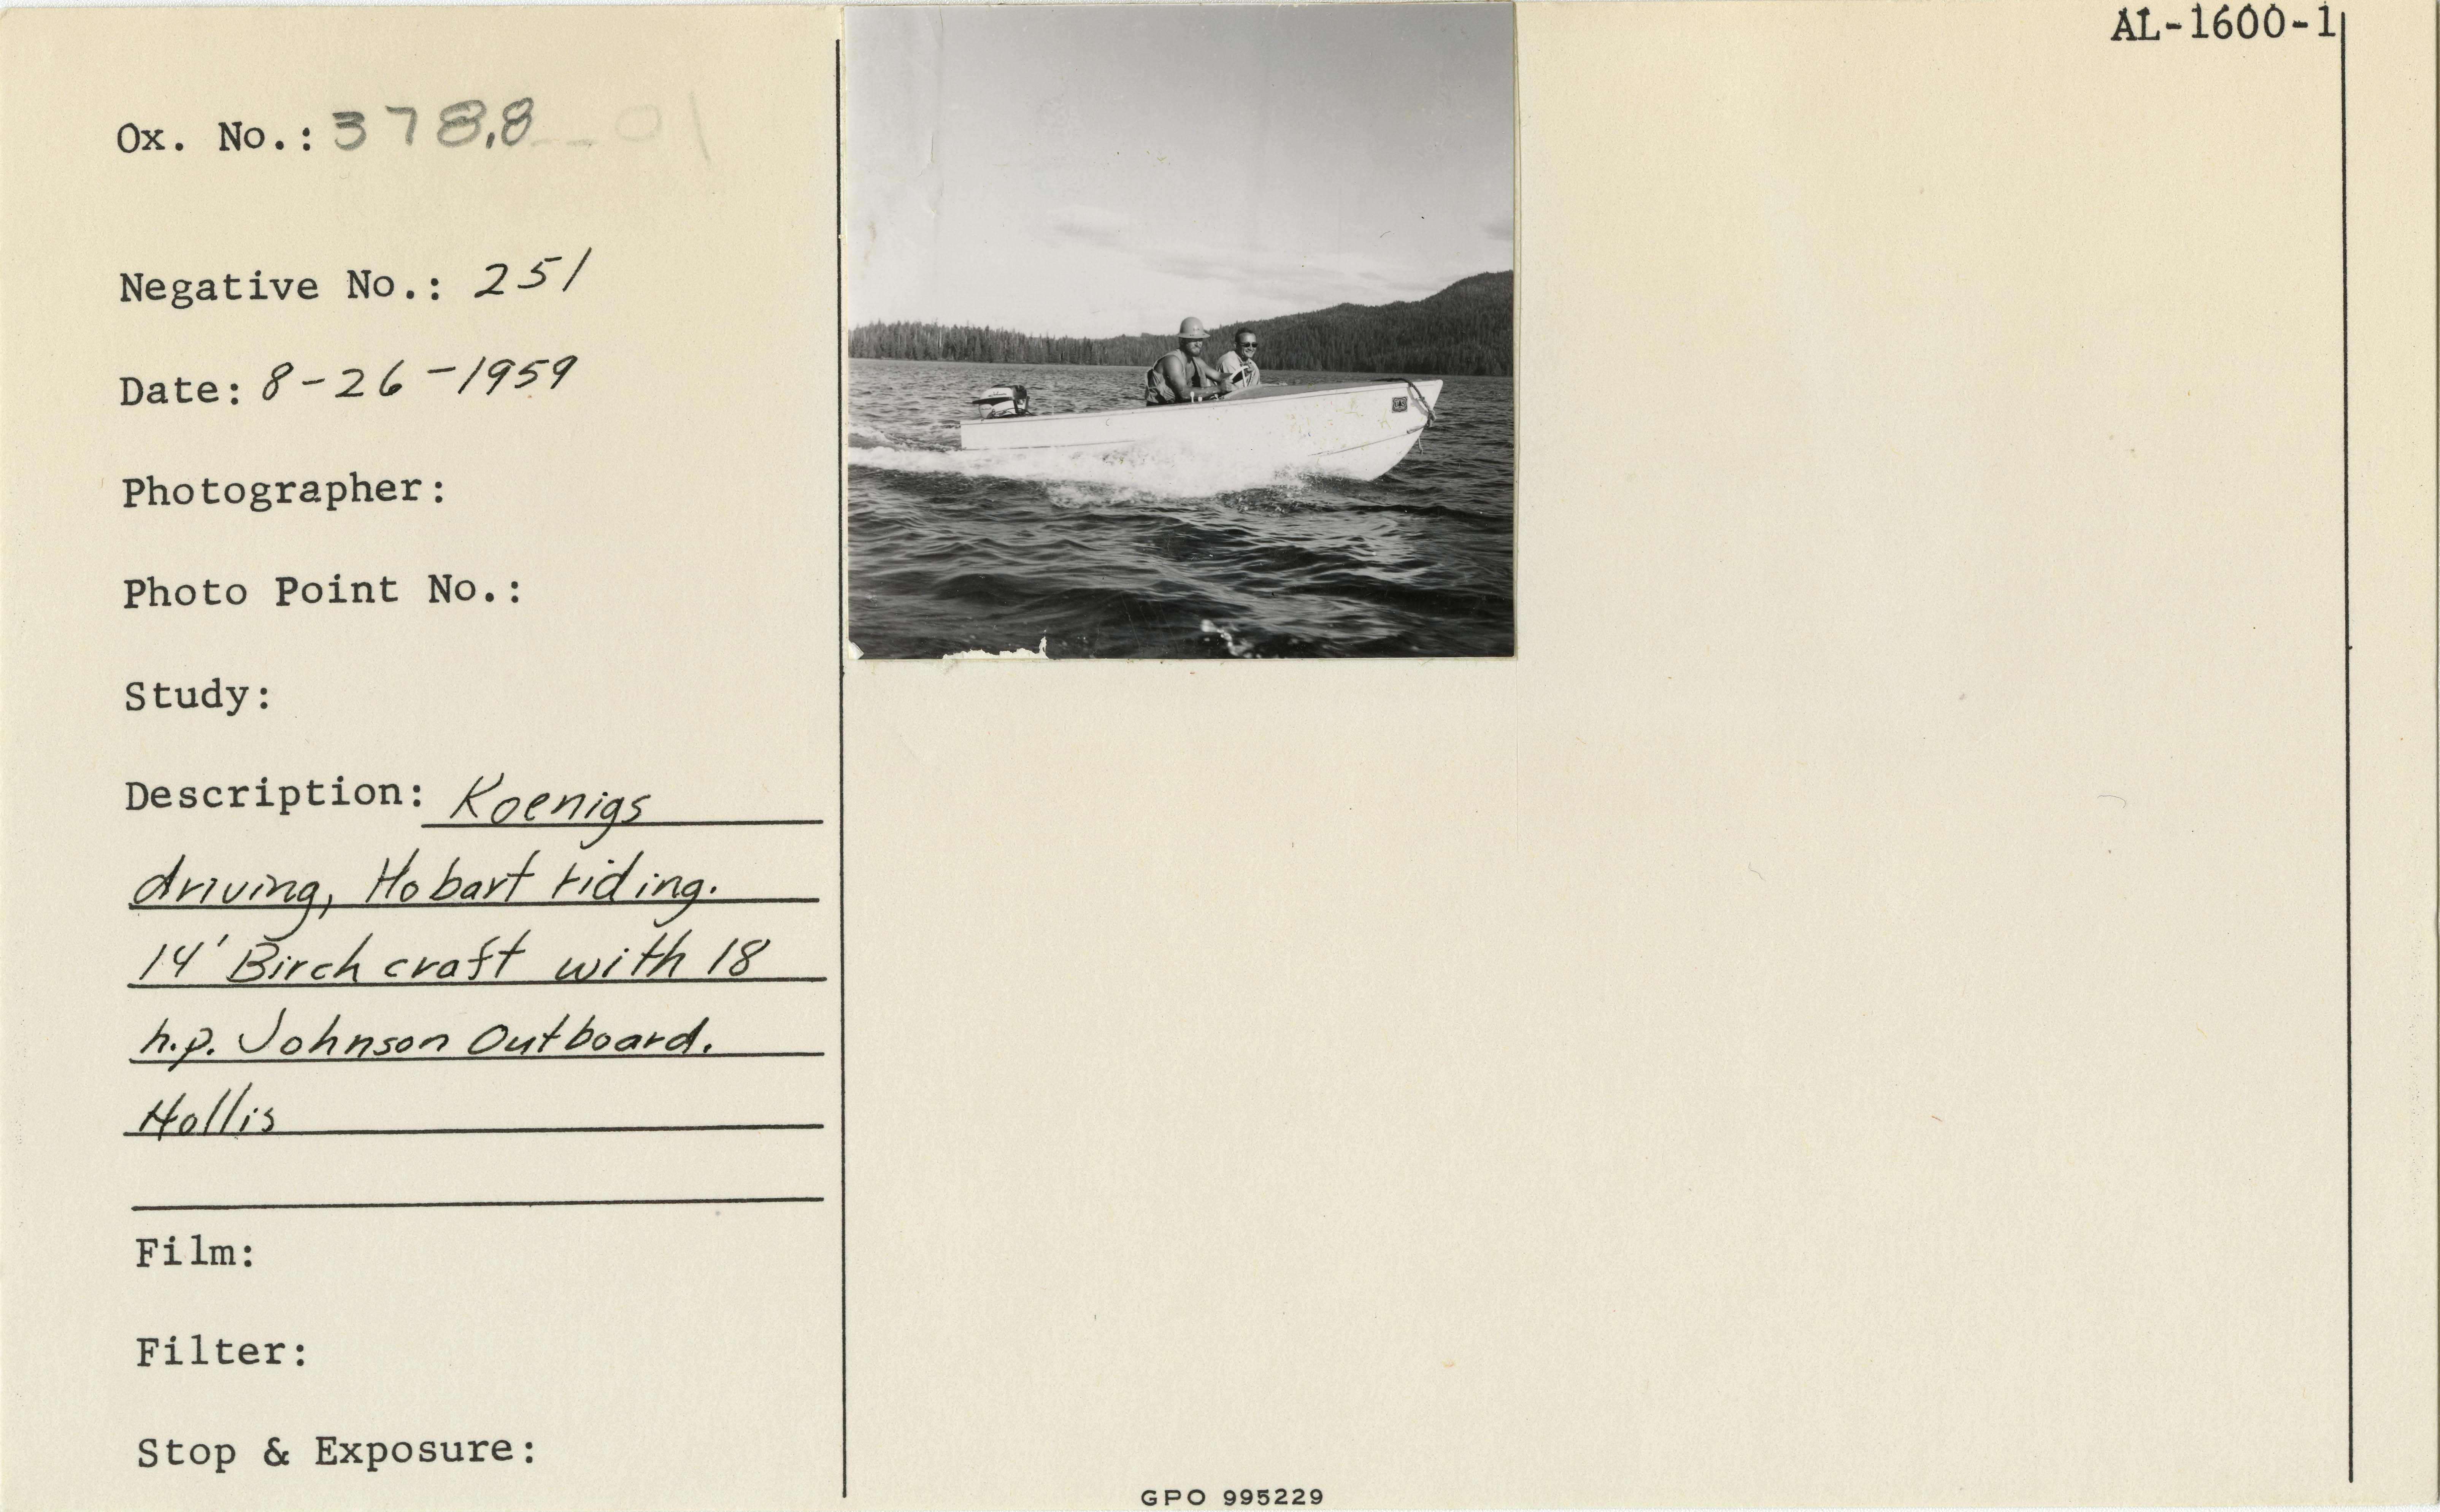 AL-1600-1
Ox. No.: 378.8 01
Negative No.: 251
Date: 8-26-1959
Photographer:
Photo Point No.:
Study:
Description: Koenigs
driving, Hobart riding.
14' Birch craft with 18
h.p. Johnson Outboard.
Hollis
Film:
Filter:
Stop & Exposure:
GPO 995229